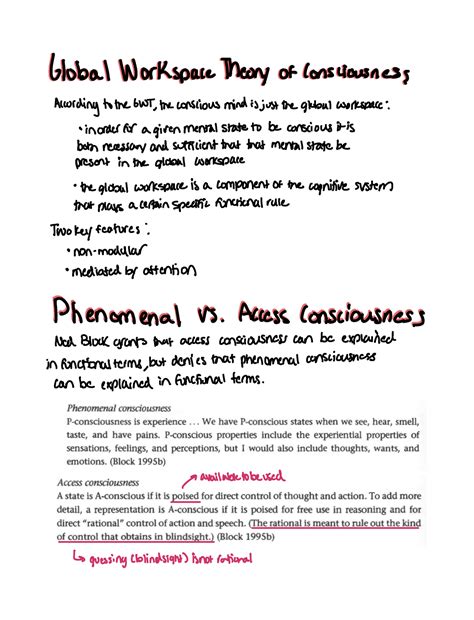 Global Workspace Theory of Consciousness
According to the GWT, the conscious mind is just the global workspace:
• in order for a given mental state to be conscious it is
both necessary and sufficient that that mental state be
present in the global workspace
• the global workspace is a component of the cognitive system
that plays a certain specific functional rule
Two key features:
• non-modular
• mediated by attention
Phenomenal vs. Access Consciousness
Ned Block grants that access consciousness can be explained
in functional terms, but denies that phenomenal consciousness
can be explained in functional terms.
Phenomenal consciousness
P-consciousness is experience ... We have P-conscious states when we see, hear, smell,
taste, and have pains. P-conscious properties include the experiential properties of
sensations, feelings, and perceptions, but I would also include thoughts, wants, and
emotions. (Block 1995b)
available to be used
Access consciousness
A state is A-conscious if it is poised for direct control of thought and action. To add more
detail, a representation is A-conscious if it is poised for free use in reasoning and for
direct “rational” control of action and speech. (The rational is meant to rule out the kind
of control that obtains in blindsight.) (Block 1995b)
guessing (blindsight) is not rational